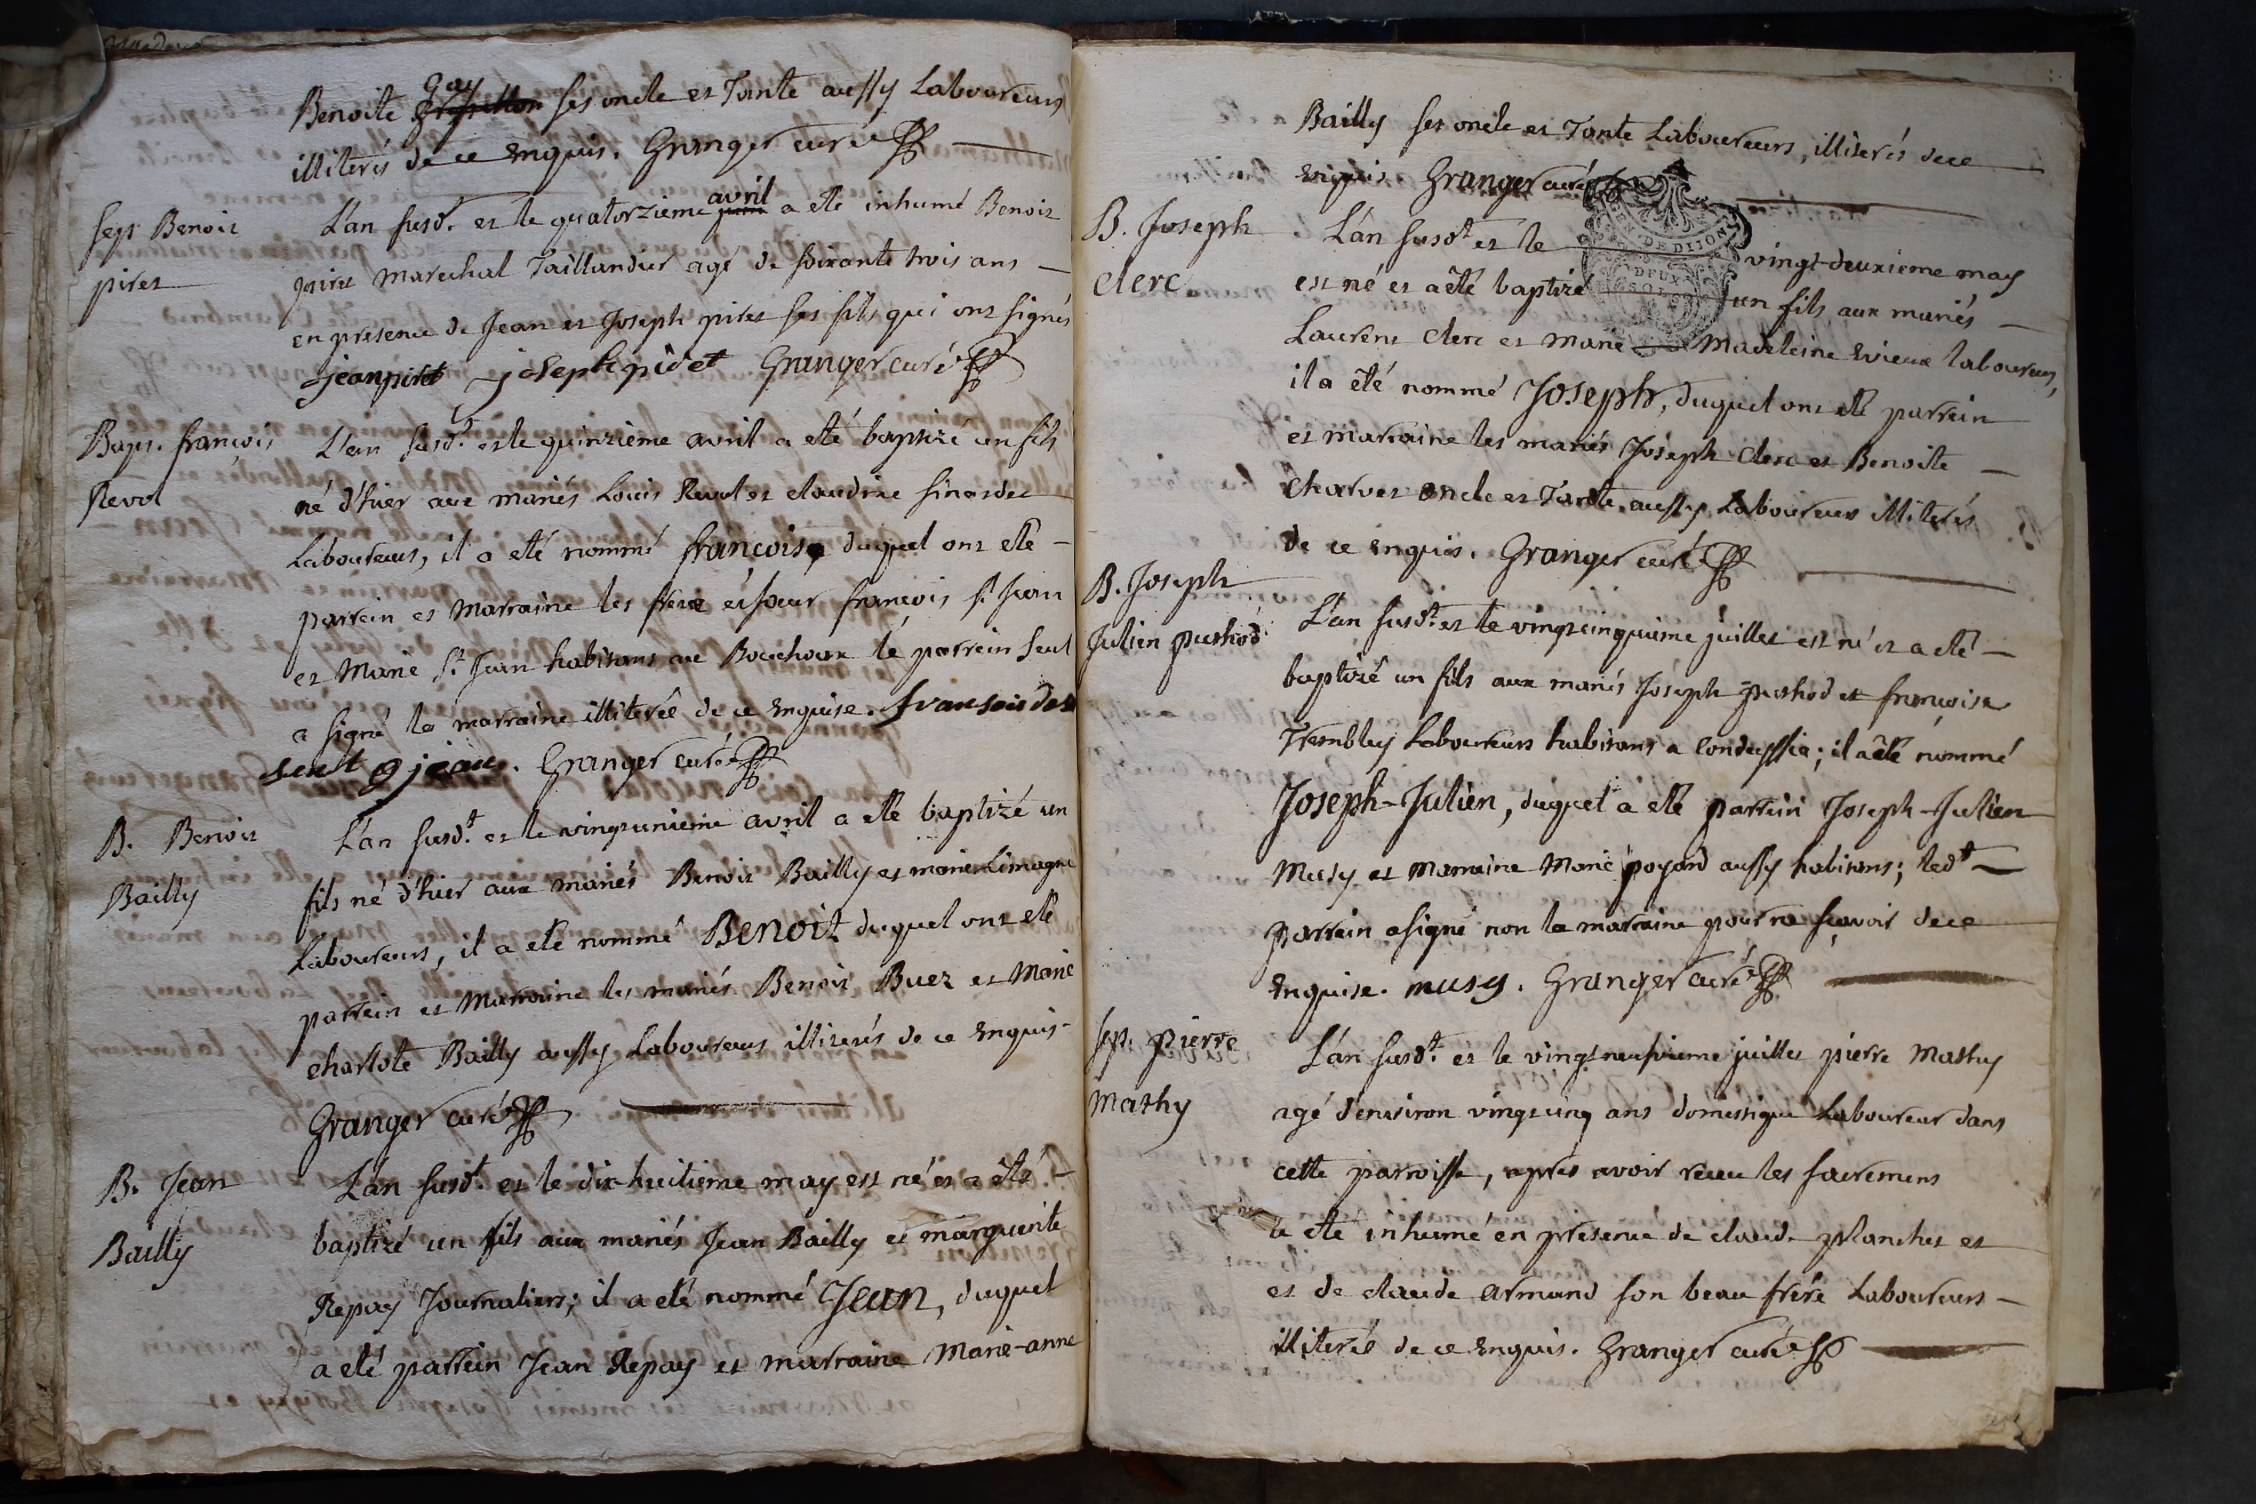 Benoite Gay ses oncle et Tante aussy Laboureurs
illiterés de ce Enquis. Granger curé
Sep. Benoit
piret
L'an susd. et le quatorzieme avril a eté inhumé Benoit
piret marechal Taillandier agé de soixante trois ans —
en presence de Jean et Joseph piret ses fils qui ont signés
jean piret joseph pidet Granger curé
Bapt. françois
Revol
L'an susd. et le quinzième avril a eté baptizé un fils
né d'hier aux mariés Louis Revol et claudine sinardet
Laboureurs, il a eté nommé françois duquel ont eté —
parrein et Marraine les frere et sœur françois St Jean
et Marie St Jean habitans au Bouchoux le parrein seul
a signé la marraine illiterée de ce Enquise. fransois de
sent jean. Granger curé
B. Benoit
Bailly
L'an susd.t et le vingtunieme avril a eté baptizé un
fils né d'hier aux mariés Benoit Bailly et marie Limagne
Laboureurs, il a eté nommé Benoit duquel ont eté
parrein et Marraine les mariés Benoit Buez et Marie
charlote Bailly aussy Laboureurs illiterés de ce Enquis -
Granger curé
B. Jean
Bailly
L'an susd.t et le dix-huitieme may est né et a été —
baptizé un fils aux mariés Jean Bailly et marguerite
Repay Journaliers; il a eté nommé Jean, duquel
a eté parrein Jean Repay et marraine Marie-anne
Bailly ses oncle et Tante Laboureurs, illiterés de ce
Enquis Granger curé
GEN. DE DIJON
DEUX
SOLS
B. Joseph
clerc
L'an susd.t et le vingt-deuxieme may
est né et a été baptizé un fils aux mariés —
Laurent clerc et marie Madeleine Evieux laboureurs,
il a été nommé Joseph, duquel ont eté parrein
et marraine les mariés Joseph clerc et Benoite —
charvet oncle et Tante aussy Laboureurs illiterés
de ce Enquis. Granger curé
B. Joseph
Julien puthod
L'an susd.t et le vingtcinquieme juillet est né et a eté —
baptizé un fils aux mariés Joseph puthod et françoise
Trembley Laboureurs habitans a condeyssia; il a été nommé
Joseph-Julien, duquel a eté parrein Joseph-Julien
Musy et Marraine Marie poyard aussy habitans; led.t —
parrein a signé non la marraine pour ne sçavoir de ce
Enquise. musy. Granger curé
Sep. pierre
Mathy
L'an susd.t et le vingtneufvieme juillet pierre Mathy
agé d'environ vingtcinq ans domestique Laboureur dans
cette parroisse, après avoir reçu les sacremens
a eté inhumé en presence de claude planchet et
et de claude armand son beau frére Laboureurs —
illiterés de ce Enquis. Granger curé